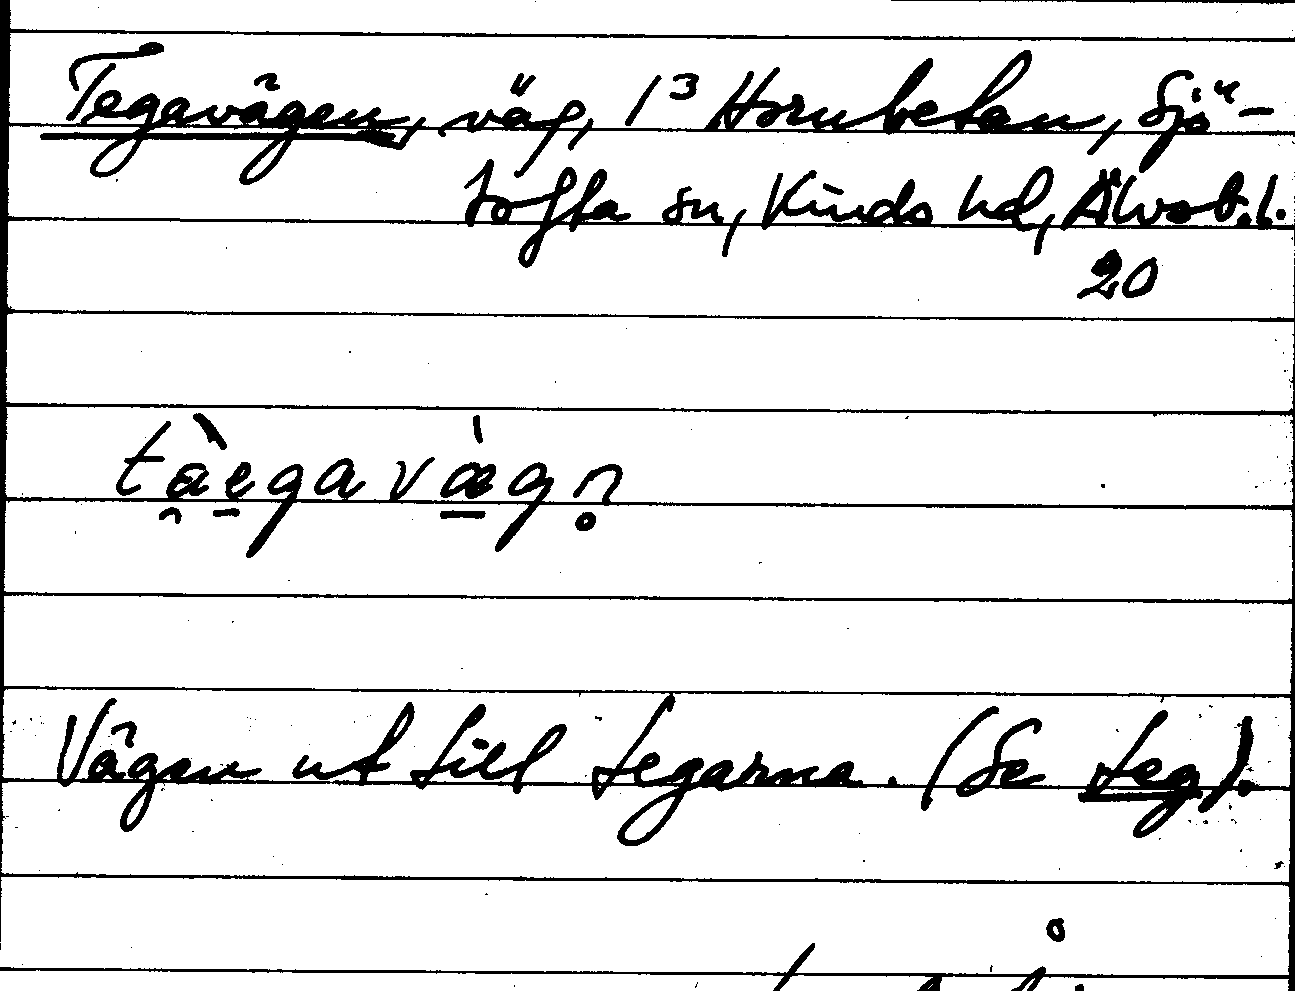 Tegavägen, väg, 1³ Hornbetan, Sjö-
tofta sn, Kinds hd, Älvsb.l.
20
tàegavàgn̥
Vägen ut till tegarna. (Se teg).